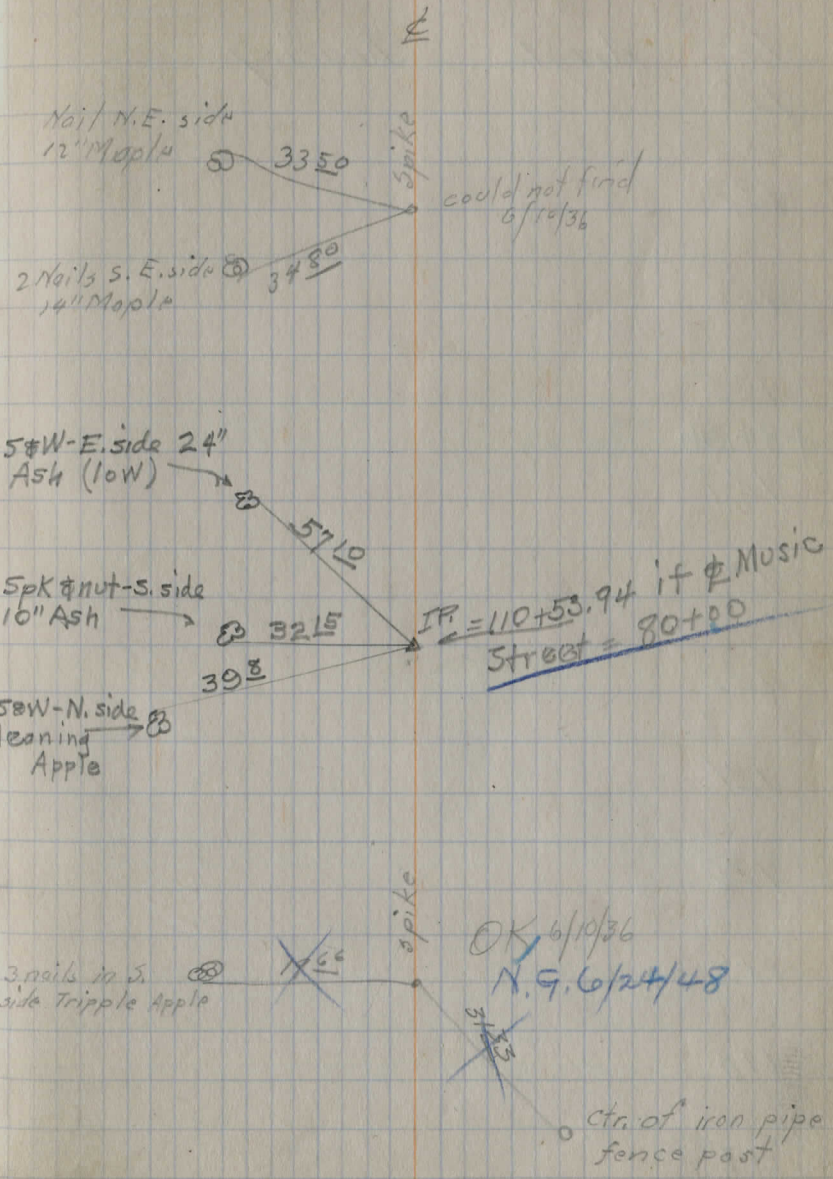 ℄
Nail N.E. side
12" Maple
33 50
Spike
could not find
6/10/36
2 Nails S.E. side
14" Maple
34 80
S&W-E. side 24"
Ash (low)
57 10
Spk & nut-S. side
10" Ash
32 15
I.P. = 110+53.94 if ℄ Music
Street = 80+00
39 8
S&W-N. side
leaning
Apple
Spike
OK 6/10/36
N.G. 6/24/48
3 nails in S.
side Tripple Apple
66
31 33
ctr. of iron pipe
fence post